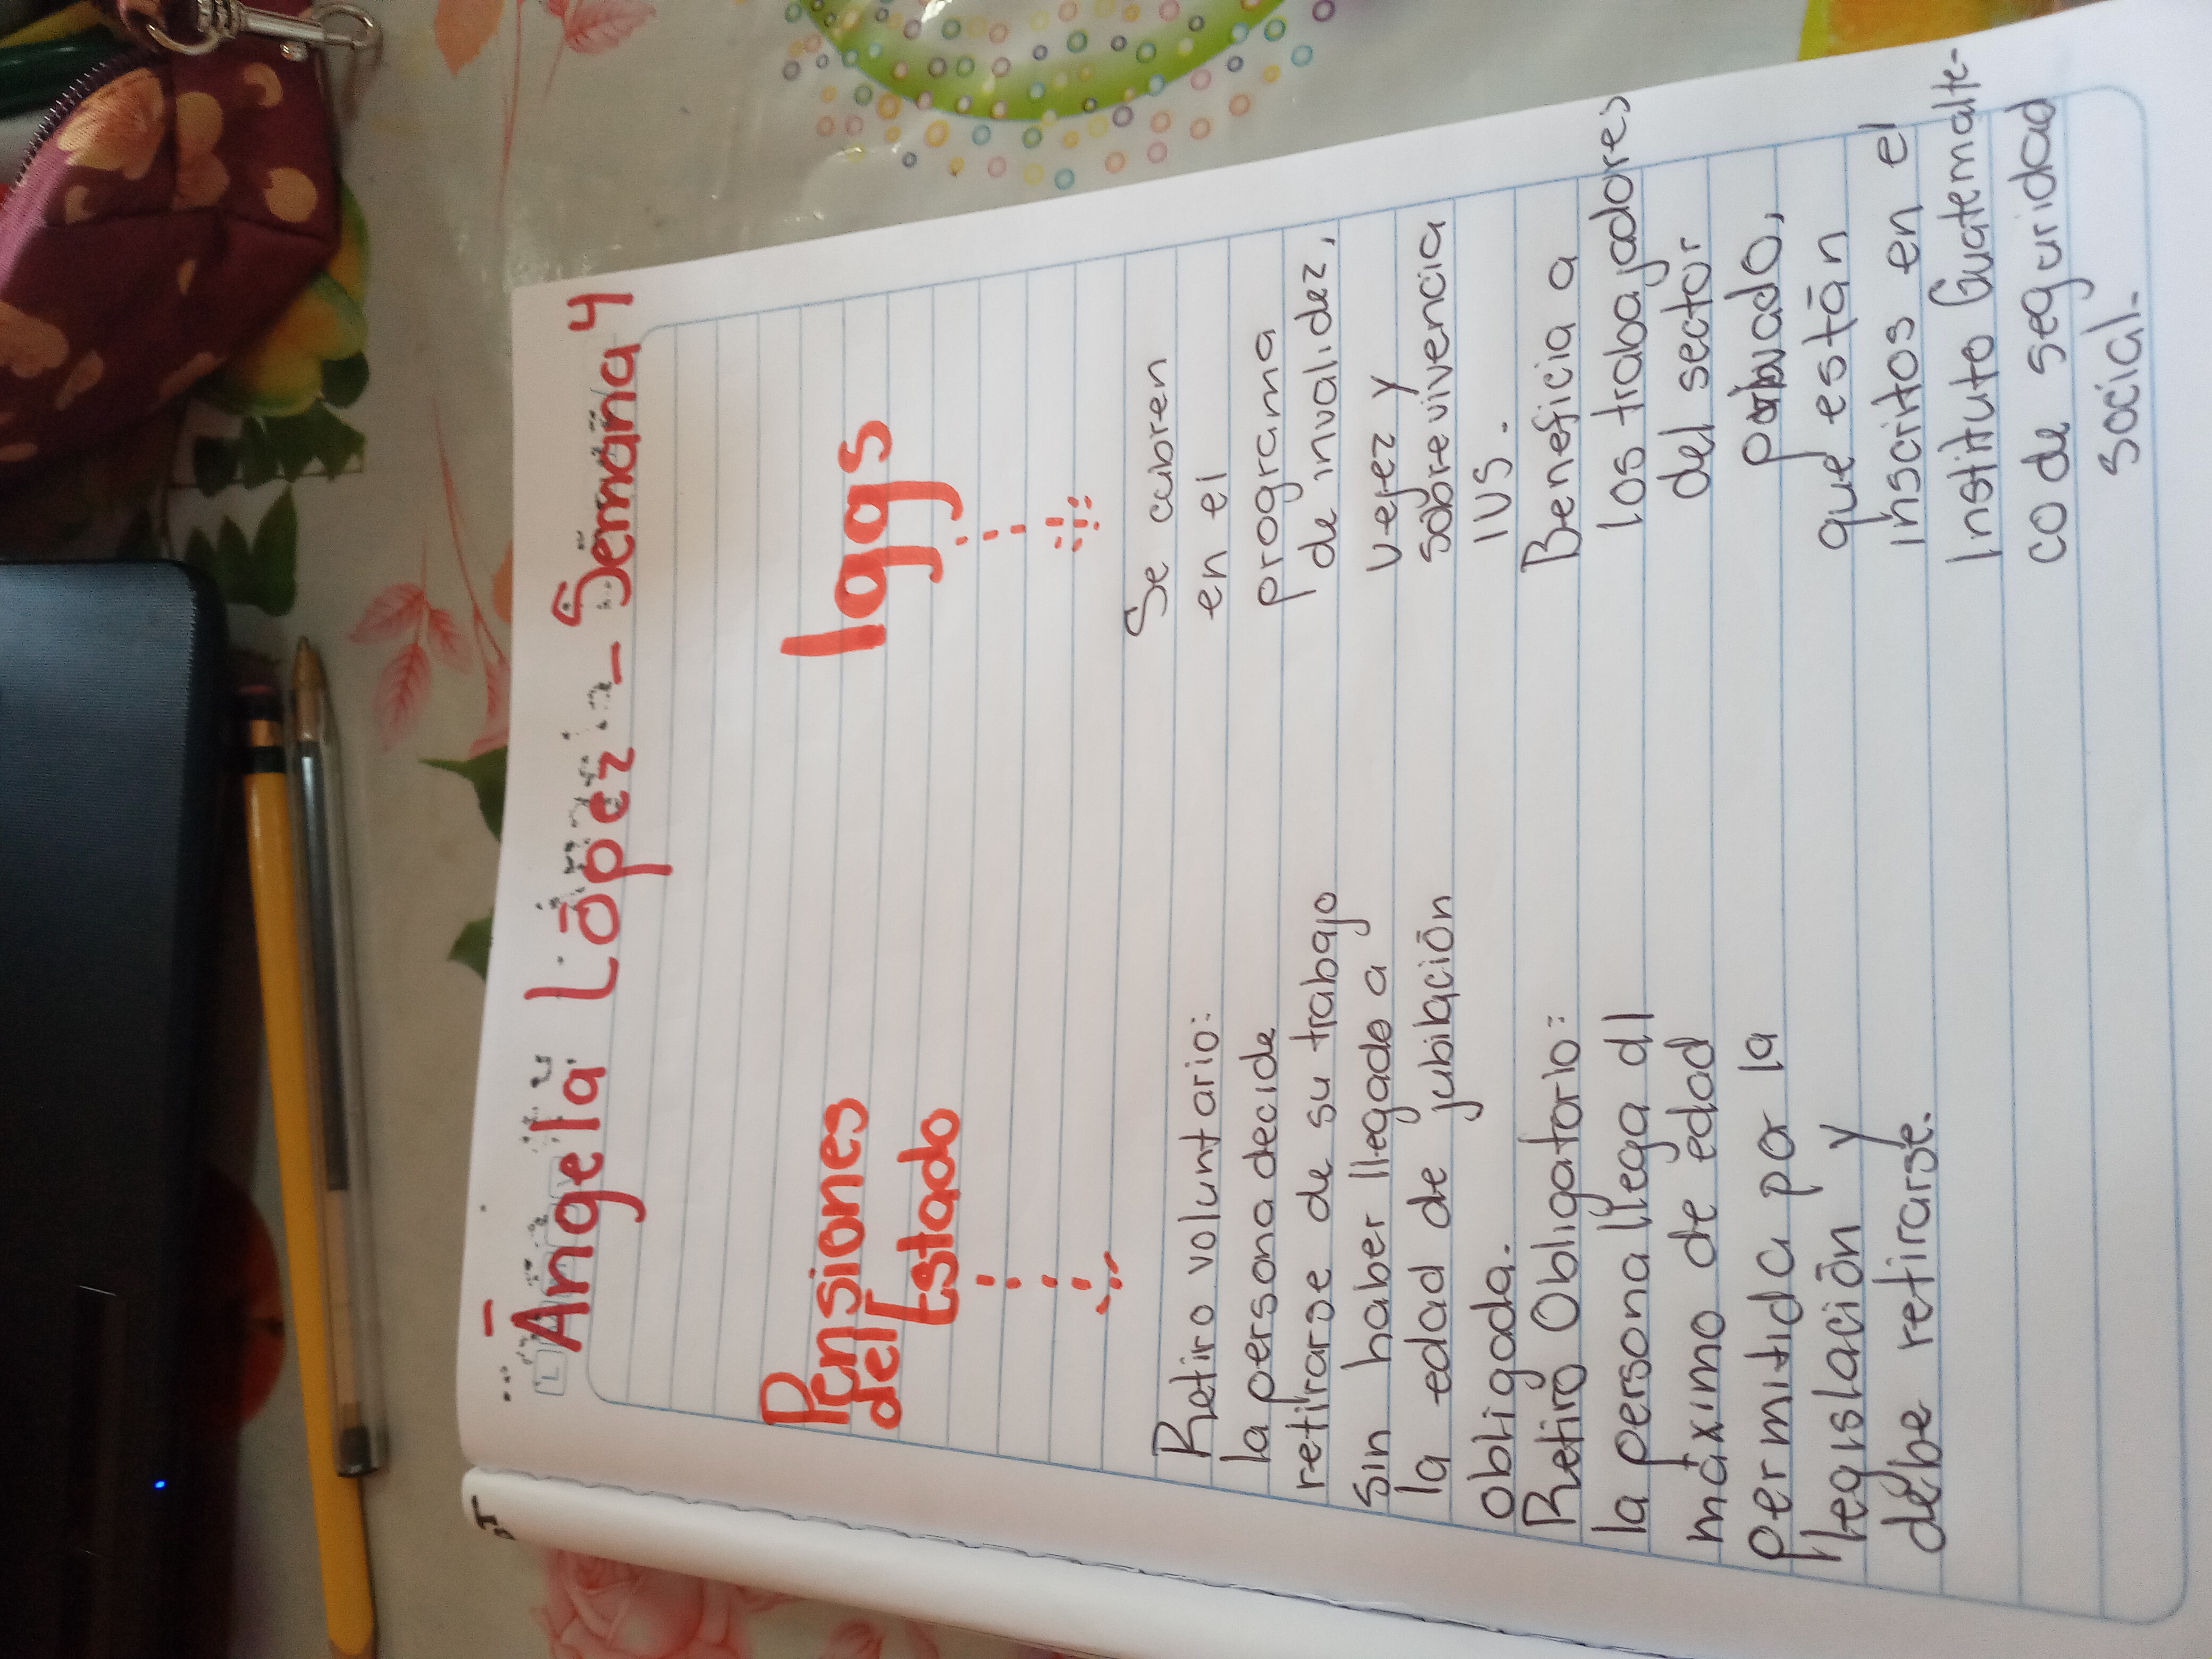 Ángela López - Semana 4
Pensiones
del Estado
Retiro voluntario:
la persona decide
retirarse de su trabajo
sin haber llegado a
la edad de jubilación
obligada.
Retiro Obligatorio:
la persona llega al
máximo de edad
permitida por la
legislación y
debe retirarse.
Iggs
Se cubren
en el
programa
de invalidez,
vejez y
sobrevivencia
IVS.
Beneficia a
los trabajadores
del sector
privado,
que están
inscritos en el
Instituto Guatemalte-
co de seguridad
social.